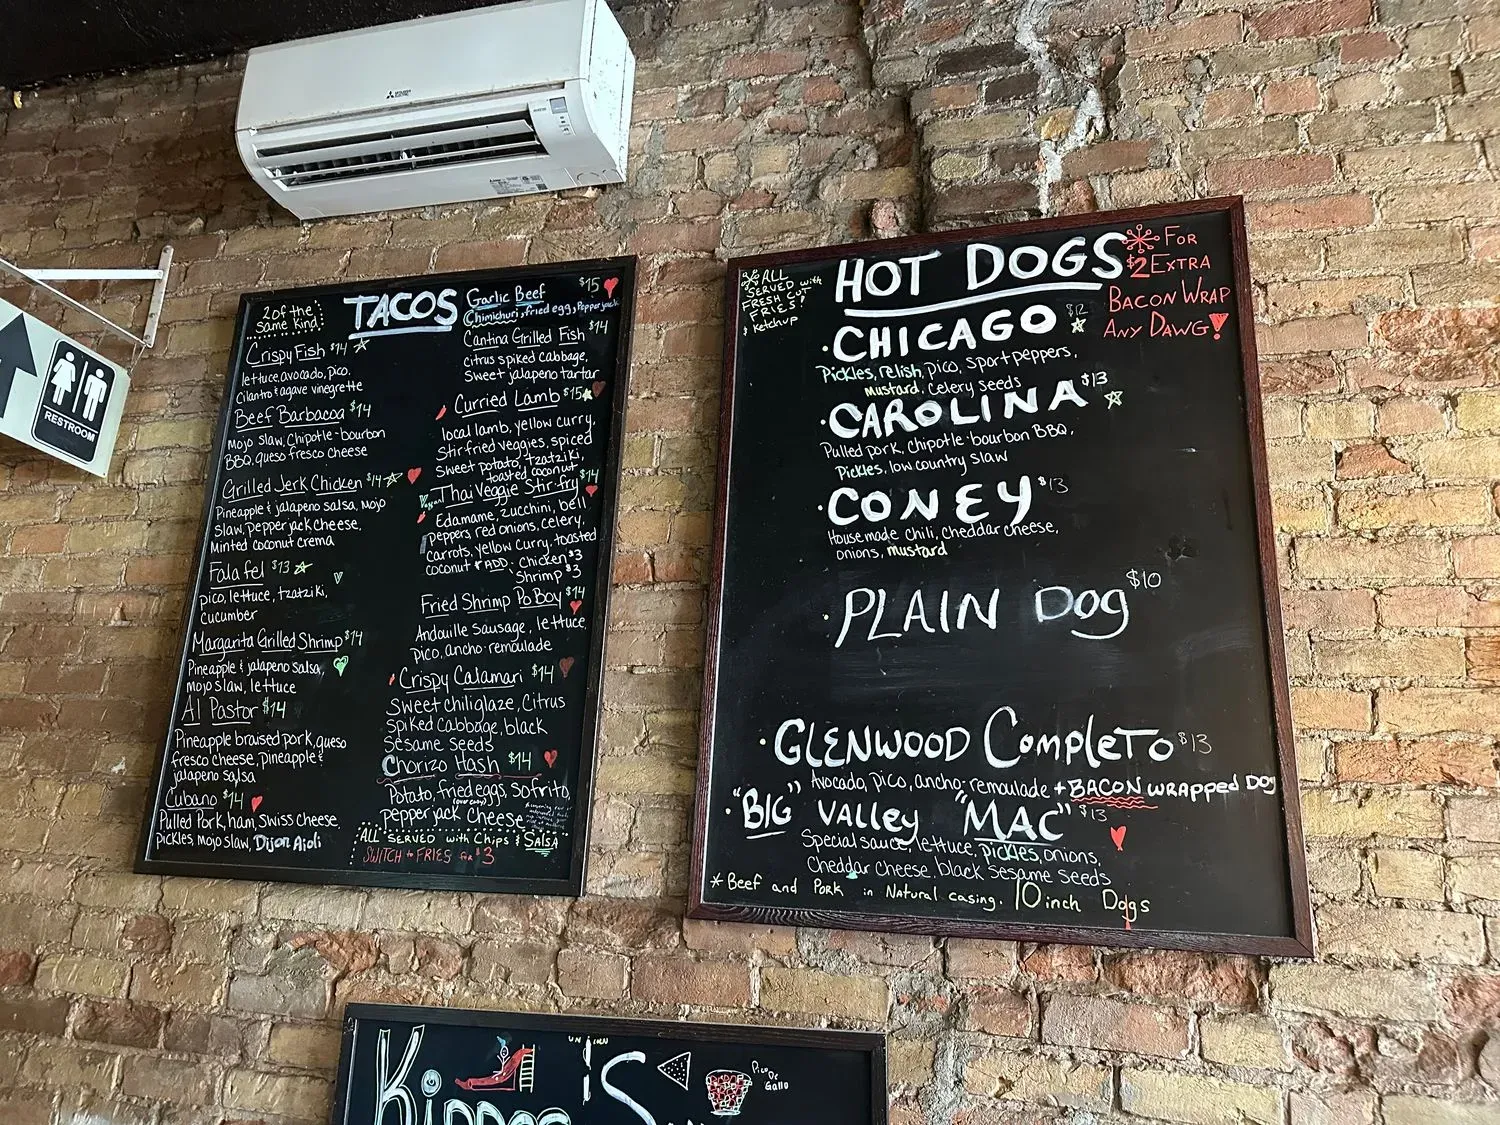 MITSUBISHI
ELECTRIC
RESTROOM
2 of the
same Kind
TACOS
Crispy Fish $14
lettuce, avocado, pico,
Cilantro & agave vinegrette
Beef Barbacoa $14
Mojo Slaw, Chipotle-bourbon
BBQ, queso fresco cheese
Grilled Jerk Chicken $14
Pineapple & jalapeno salsa, mojo
slaw, pepper jack cheese,
Minted coconut crema
Falafel $13
V
pico, lettuce, tzatziki,
Cucumber
Margarita Grilled Shrimp $14
Pineapple & jalapeno salsa,
mojo slaw, lettuce
Al Pastor $14
Pineapple braised pork, queso
fresco cheese, Pineapple &
jalapeno salsa
Cubano $14
Pulled Pork, ham, Swiss cheese,
pickles, mojo slaw, Dijon Aioli
Garlic Beef $15
Chimichuri, fried egg, Pepper jack
Cantina Grilled Fish $14
citrus spiked cabbage,
Sweet jalapeno tartar
Curried Lamb $15
local lamb, yellow curry,
Stir fried veggies, spiced
Sweet potato, tzatziki,
toasted coconut
Thai Veggie Stir-fry $14
Edamame, zucchini, bell
peppers red onions, celery,
carrots, yellow curry, toasted
coconut * ADD: Chicken $3
Shrimp $3
Fried Shrimp Po Boy $14
Andouille Sausage, lettuce
pico, ancho-remoulade
Crispy Calamari $14
Sweet chiliglaze, Citrus
Spiked Cabbage, black
Sesame Seeds
Chorizo Hash $14
Potato, fried eggs, Sofrito,
(over easy)
pepper jack cheese
ALL SERVED with Chips & SALSA
SWITCH to FRIES for $3
* ALL
SERVED with
FRESH CUT
FRIES
& Ketchup
HOT DOGS
* FOR
$2 EXTRA
BACON WRAP
ANY DAWG!
CHICAGO $12
Pickles, relish, pico, sport peppers,
mustard, celery seeds
CAROLINA $13
Pulled pork, chipotle-bourbon BBQ,
Pickles, low country slaw
CONEY $13
House made chili, cheddar cheese,
onions, mustard
PLAIN Dog $10
GLENWOOD Completo $13
Avocado, pico, ancho-remoulade + BACON wrapped Dog
"BIG" Valley "MAC" $13
Special sauce, lettuce, pickles, onions,
Cheddar cheese, black Sesame Seeds
* Beef and PORK in Natural casing. 10 inch Dogs
Pico De
Gallo